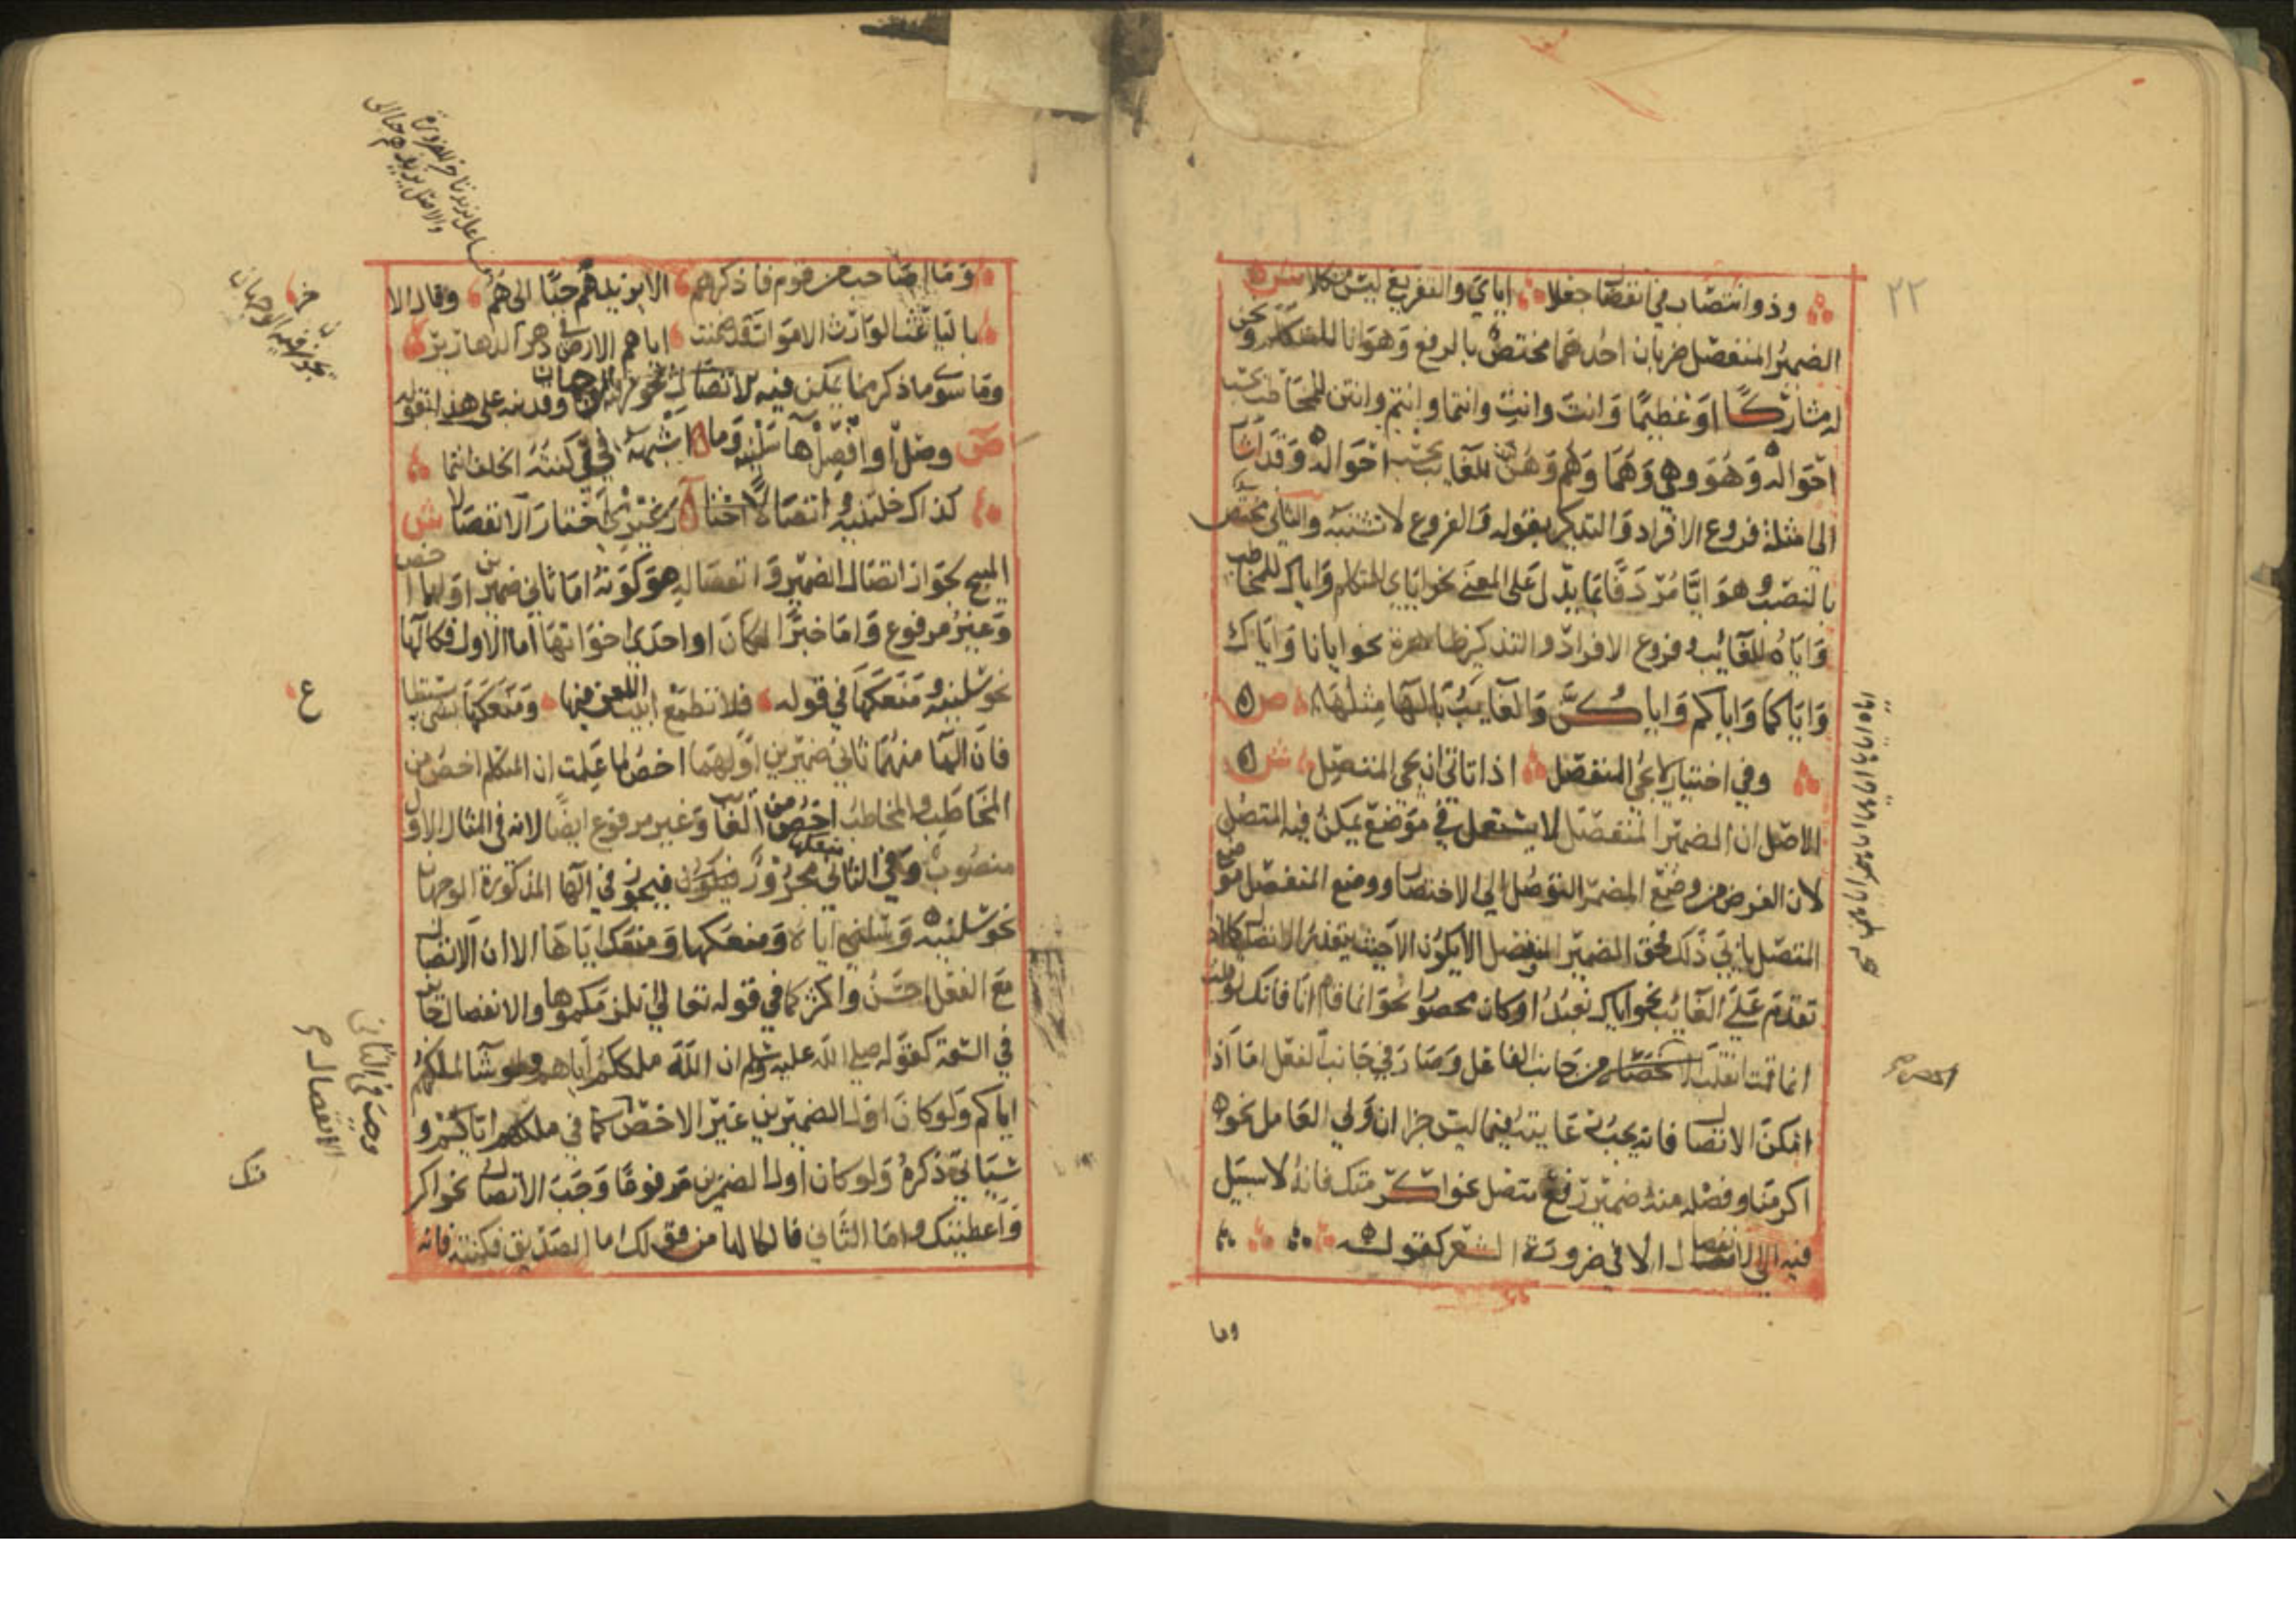 ٢٢
وذو انتصاب في انفصال جعلا اياي والتفريع ليس مشكلا ش
الضمير المنفصل ضربان احدهما مختص بالرفع وهو انا للمتكلم ونحن
له مشاركا او عظيما وانت وانت وانتما وانتم وانتن للمخاطب بحسب
احواله وهو وهي وهما وهم وهن للغايب بحسب احواله وقد اشار
الى امثلة فروع الافراد والتذكير بقوله والفروع لا تشتبه والثاني مختص
بالنصب وهو ايا مردفا بما يدل على المعنى نحو اياي للمتكلم واياك للمخاطب
واياه للغائب وفروع الافراد والتذكير ظاهرة نحو ايانا واياك
واياكما واياكم واياكن والغايب بالها مثلها ص
وفي اختيار لا يجئ المنفصل اذا تاتى ان يجي المتصل ش
الاصل ان الضمير المنفصل لا يستعمل في موضع يمكن فيه المتصل
لان الغرض من وضع المضمر التوصل الى الاختصار ووضع المنفصل موضع
المتصل يابى ذلك فحق الضمير المنفصل الا يكون الا حيث يتعذر الاتصال كاذا
تقدم على العامل نحو اياك نعبد او كان محصورا نحو انما قام انا فانك لو قلت
انما قمت انقلب الحصر من جانب الفاعل وصار في جانب الفعل اما اذا
امكن الاتصال فانه يجب رعايته فيما ليس خبرا ان ولي العامل نحو
اكرمنا وفصله منه ضمير رفع متصل نحو اكرمتك فانه لا سبيل
فيه الى الانفصال الا في ضرورة الشعر كقوله
وما
وما اصاحب من قوم فاذكرهم الا يزيدهم حبا الى هم وقال الا
بالباعث الوارث الاموات قد ضمنت اياهم الارض في دهر الدهارير
وما سوى ما ذكر مما يمكن فيه الاتصال يجوز فيه الوجهان وقد نبه على هذا بقوله
ص وصل او افصل ها سلنيه وما اشبهه في كنته الخلف انتما
كذاك خلتنيه واتصالا اختار غيري اختار الانفصالا ش
المبيح لجواز اتصال الضمير وانفصاله هو كونه اما ثاني ضميرين اولهما اخص
وغير مرفوع واما خبرا لكان او احدى اخواتها اما الاول فكالها
نحو سلنيه ومنعكها في قوله فلا تطمع ابيت اللعن فيها ومنعكها بشي يستطاع
فان الها منهما ثاني ضميرين اولهما اخص لما علمت ان المتكلم اخص من
المخاطب والمخاطب اخص من الغائب وغير مرفوع ايضا لانه في المثال الاول
منصوب وفي الثاني مجرور فيجوز في الها المذكورة الوجهان
نحو سلنيه وسلني اياه ومنعكها ومنعك اياها الا ان الاتصال
مع الفعل احسن واكثر كما في قوله تعالى انلزمكموها والانفصال جاز
في السعة كقوله صلى الله عليه وسلم ان الله ملككم اياهم ولو شا لملكهم
اياكم ولو كان اول الضميرين غير الاخص كما في ملكهم اياكم و
سياتي ذكره ولو كان اول الضميرين مرفوعا وجب الاتصال نحو اكر
واعطيتك واما الثاني فكالها من قولك اما الصديق فكنته فانه